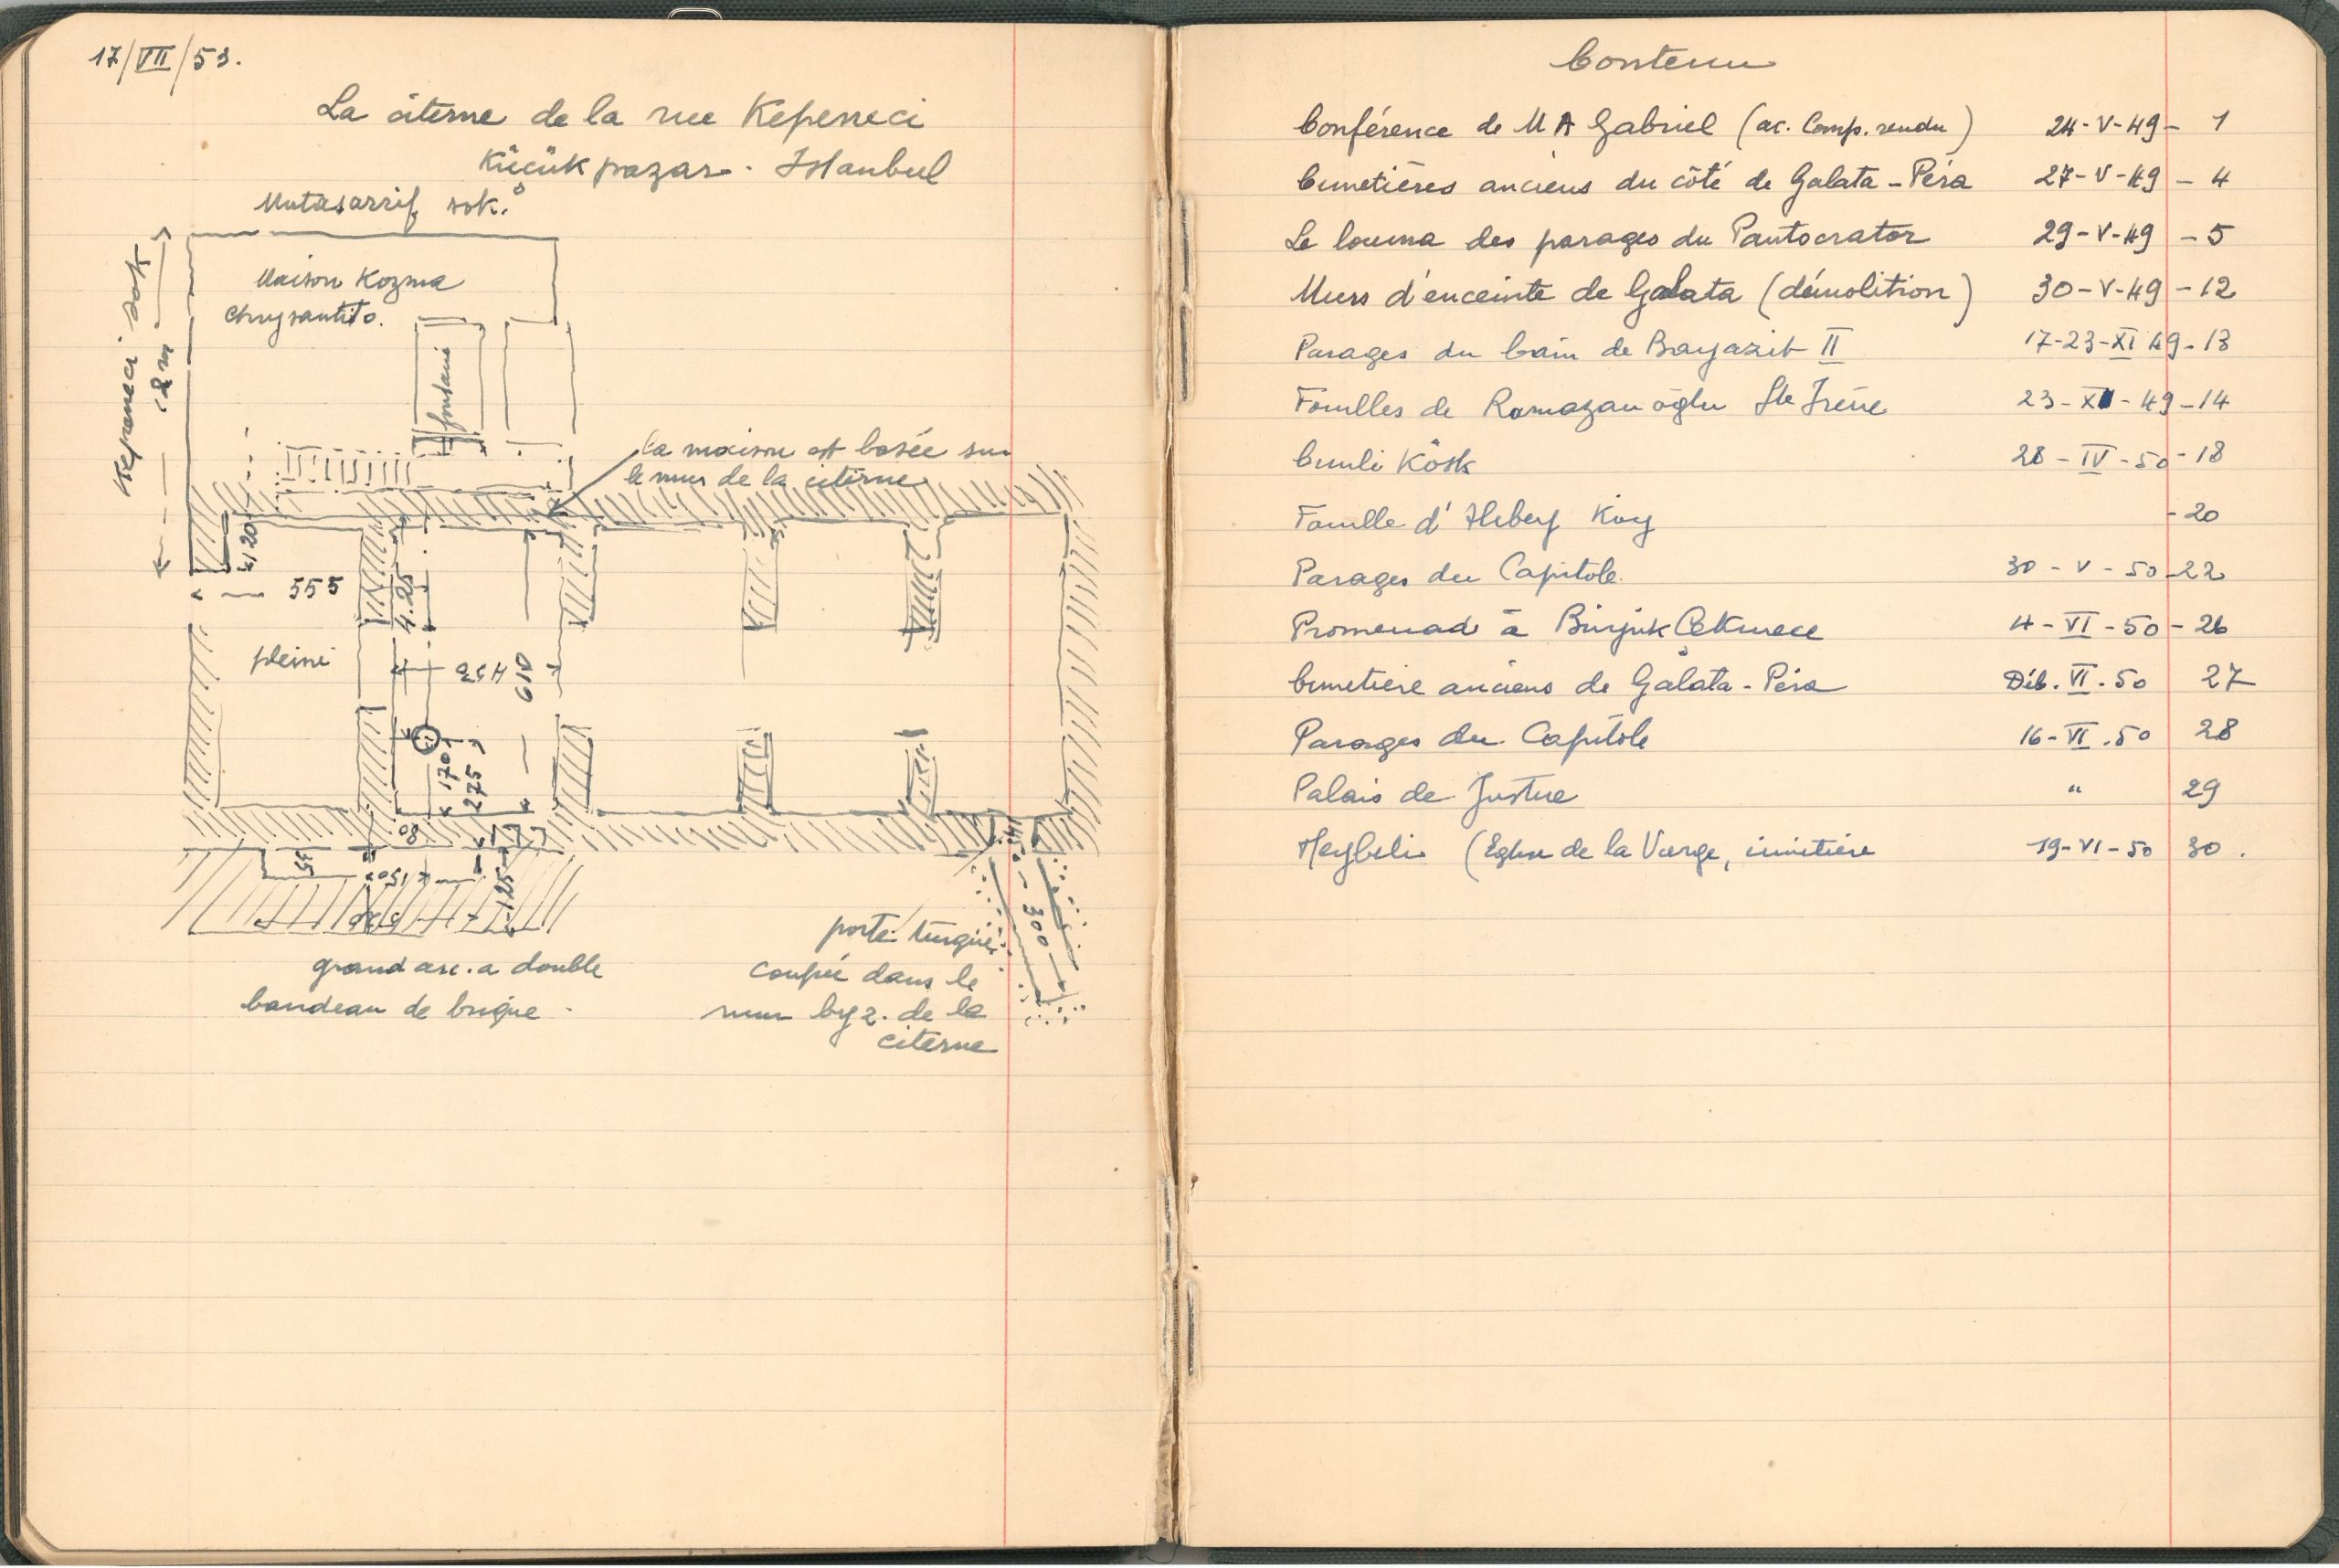 17/VII/53.
La citerne de la rue Kepeneci
Kücük pazar. Istanbul
Mutasarrif sok.
Kepeneci sok
Maison Kozma
Chrysantito.
fontaine
la maison est basée sur
le mur de la citerne
120
555
4.25
pleine
435
610
170
275
80
35
150
125
145
300
grand arc. a double
bandeau de brique.
porte turque
coupée dans le
mur byz. de la
citerne
Contenu
Conférence de M A Gabriel (ac. Comp. rendu) 24-V-49-1
Cimetières anciens du côté de Galata-Péra 27-V-49-4
Le louma des parages du Pantocrator 29-V-49-5
Murs d'enceinte de Galata (démolition) 30-V-49-12
Parages du bain de Bayazit II 17-23-XI 49-13
Fouilles de Ramazanoğlu Ste Irène 23-XI-49-14
Cinili Kôsk 28-IV-50-18
Fouille d' Köy -20
Parages du Capitole. 30-V-50-22
Promenad à Büyük Çekmece 4-VI-50-26
Cimetière anciens de Galata-Péra Déb. VI.50 27
Parages du Capitole 16-VI.50 28
Palais de Justice " 29
Heybeli (Eglise de la Vierge, cimitière 19-VI-50 30.